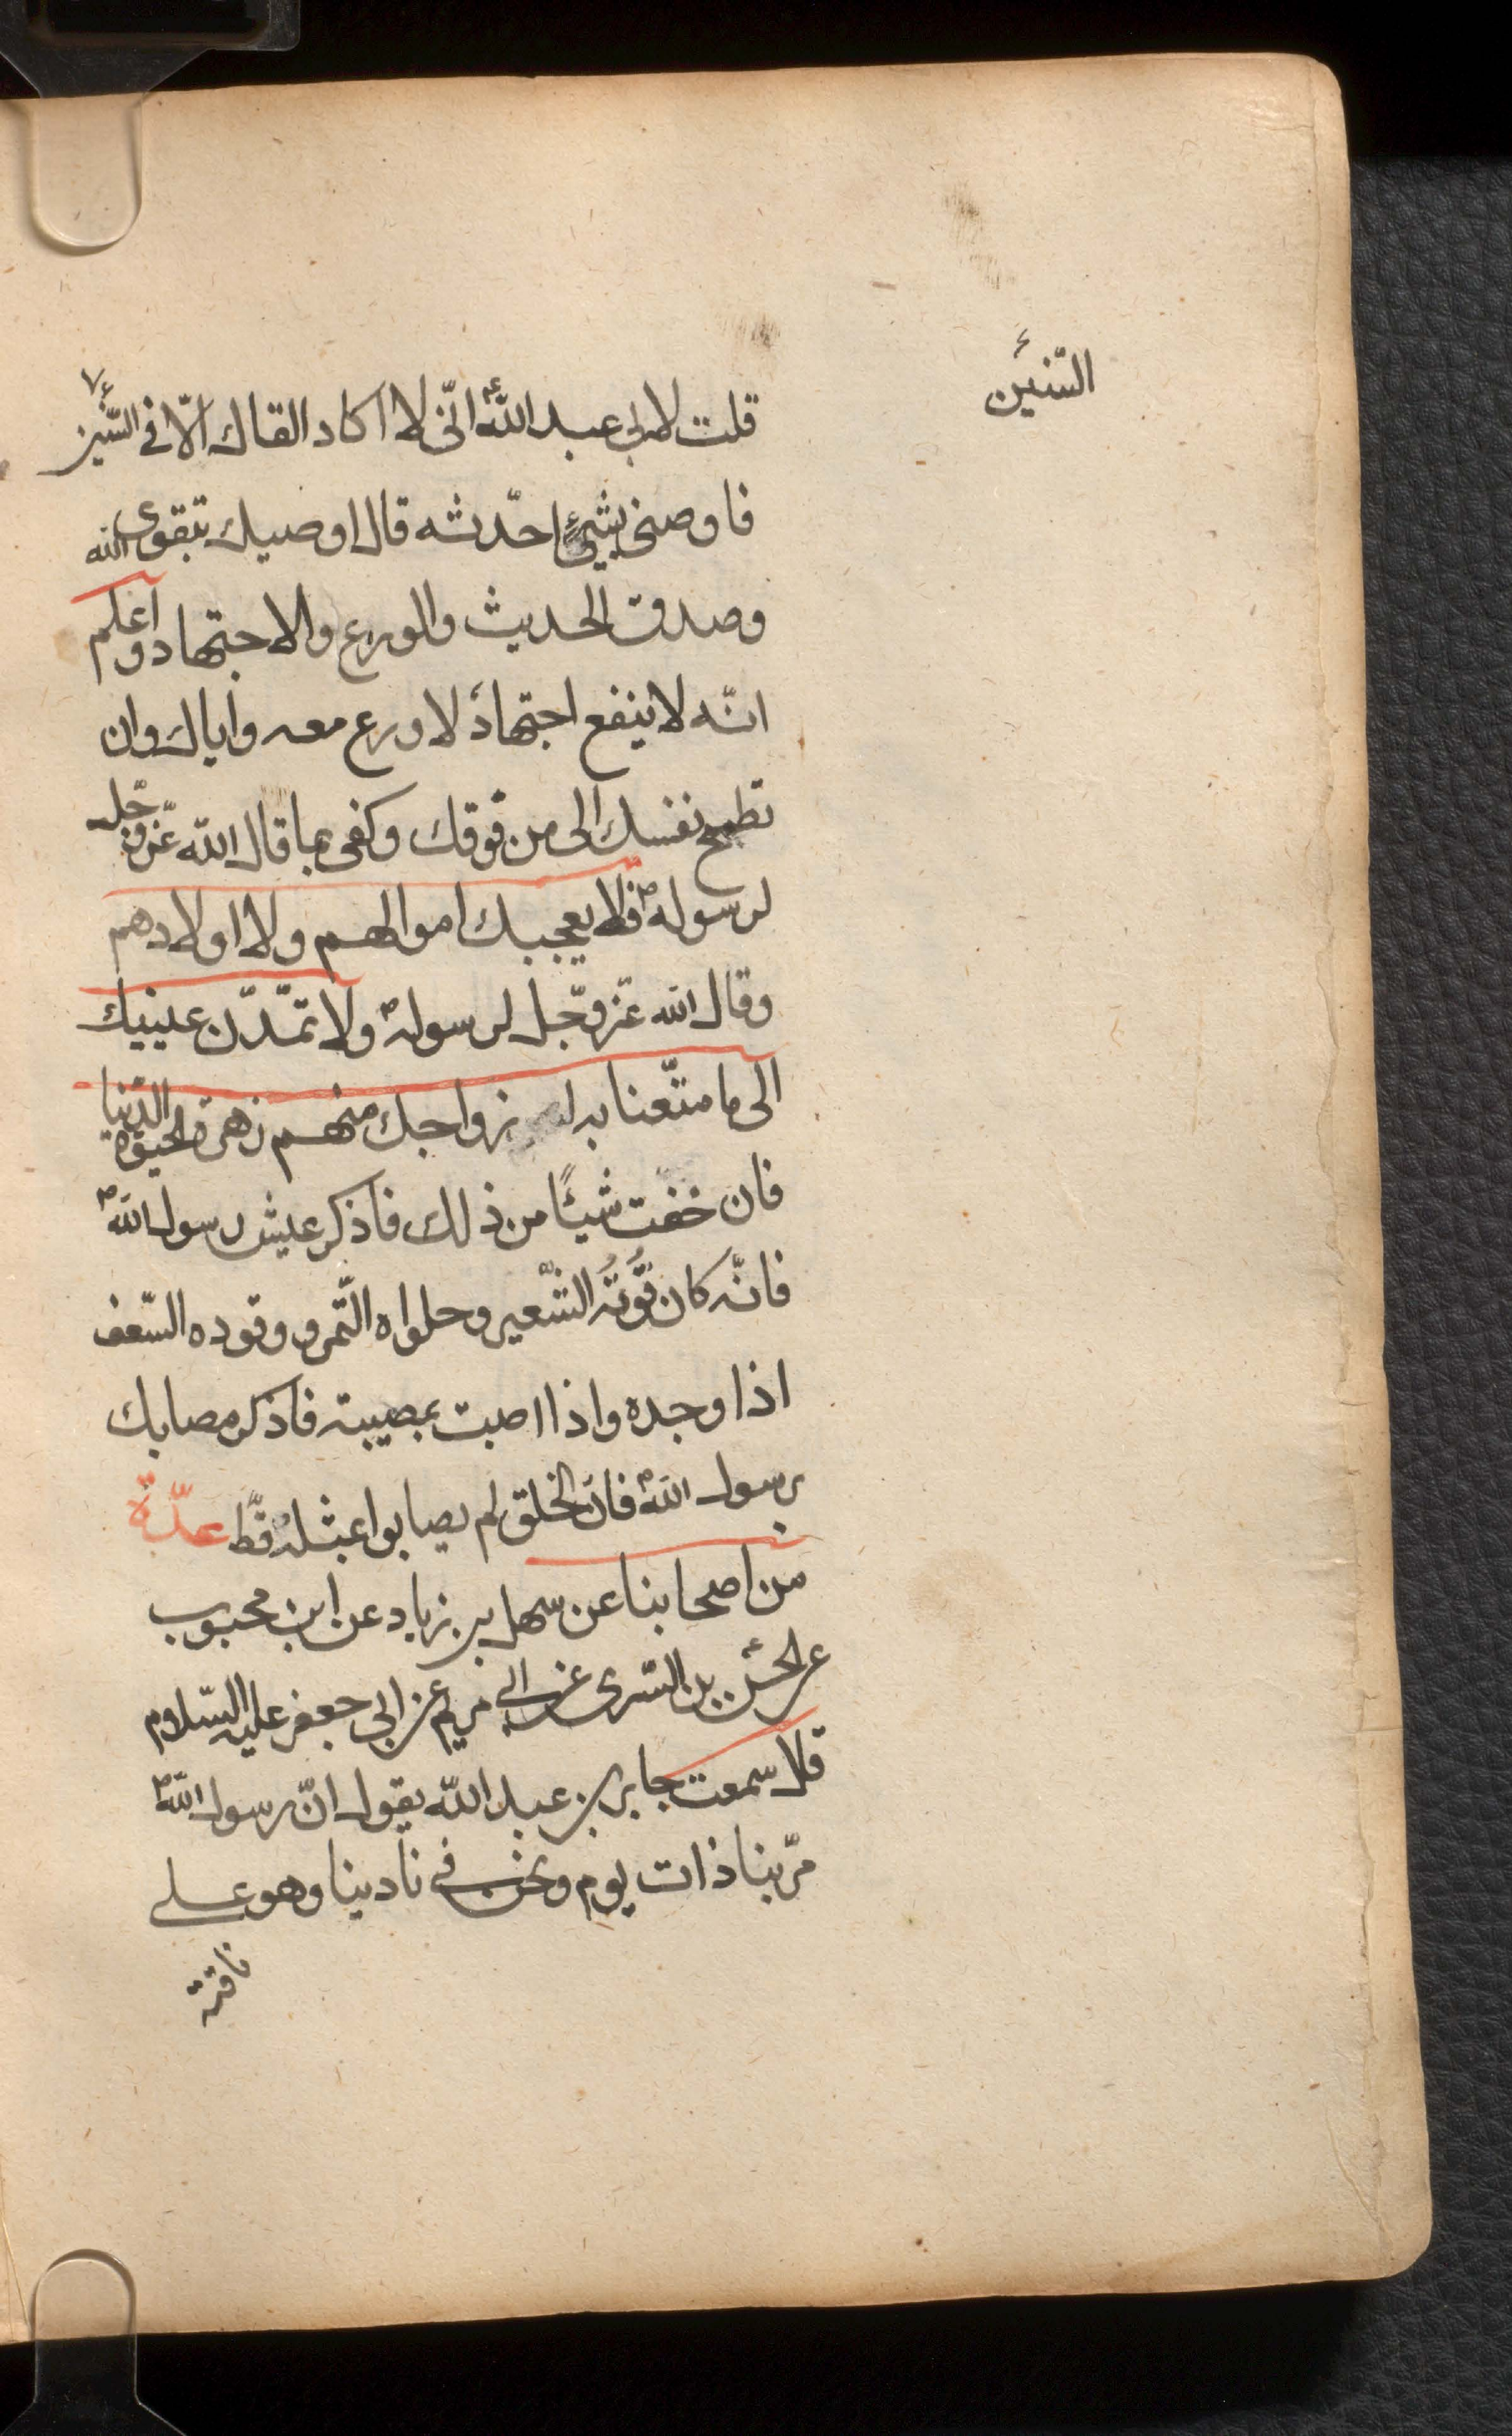 السّنين
قلت لابي عبد الله ع انّى لا اكاد القاك الّا فى السّنين
فاوصنى بشيئ احدّثه قال اوصيك بتقوى الله
وصدق الحديث والورع والاجتهاد واعلم
انّه لا ينفع اجتهاد لا ورع معه واياك وان
تطمح نفسك الى من فوقك وكفى بما قال الله عزّ وجلّ
لرسوله ص فلا يعجبك اموالهم ولا اولادهم
وقال الله عزّ وجّل لرسوله ص ولا تمدّنّ عينيك
الى ما متّعنا به ازواجك منهم زهرة الحيوة الدّنيا
فان خفت شيئًا من ذلك فاذكر عيش رسول الله ص
فانّه كان قُوتُه الشّعير وحلواه التّمر ووقوده السّعف
اذا وجده واذا اصبت بمصيبة فاذكر مصابك
برسول الله ص فانّ الخلق لم يصابوا بمثله قطّ عدّة
من اصحابنا عن سهل بن زياد عن ابن محبوب
عن الحسن بن السّرى عن ابى مريم عن ابى جعفر عليه السّلام
قال سمعت جابر بن عبد الله يقول انّ رسول الله ص
مرّ بنا ذات يوم ونحن فى نادينا وهو على
ناقته